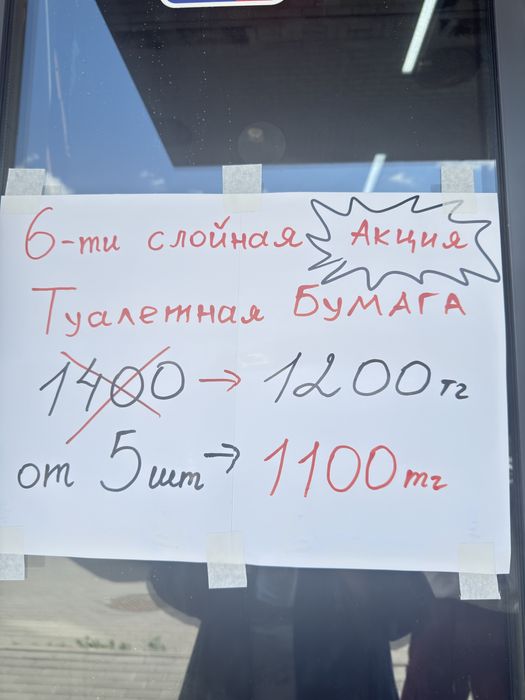 6-ти слойная Акция
Туалетная БУМАГА
1400 → 1200тг
от 5шт → 1100тг